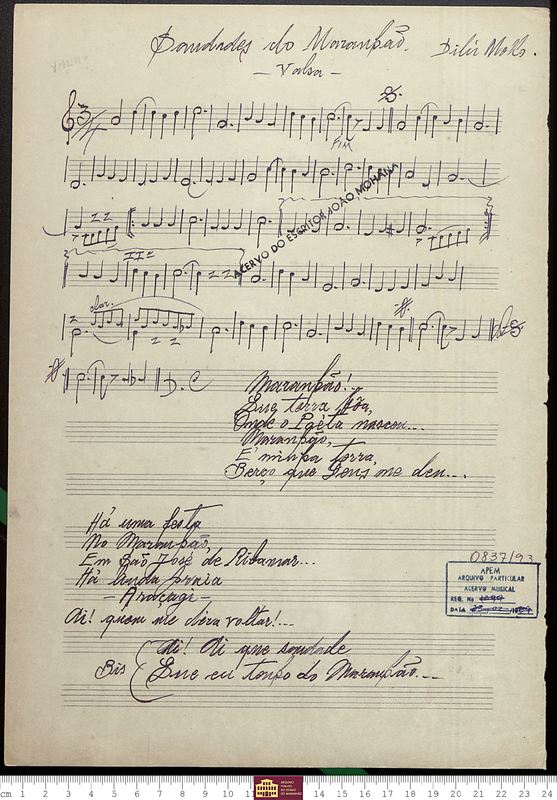 Saudades do Maranhão. Dilú Mello.
- Valsa -
FIM
ACERVO DO ESCRITOR JOÃO MOHANA
D. C
Maranhão!...
Que terra bôa,
Onde o Poéta nasceu...
Maranhão,
É minha terra
Berço que Deus me deu...
Há uma festa
No Maranhão,
Em São José de Ribamar...
Há linda praia
- Araçagi -
Ai! quem me déra voltar!...
Ai! Ai que saudade
Bis
Que eu tenho do Maranhão...
0837/93
APEM
ARQUIVO PARTICULAR
ACERVO MUSICAL
REG. No
DATA
cm 1 2 3 4 5 6 7 8 9 10 11 14 15 16 17 18 19 20 21 22 23 24